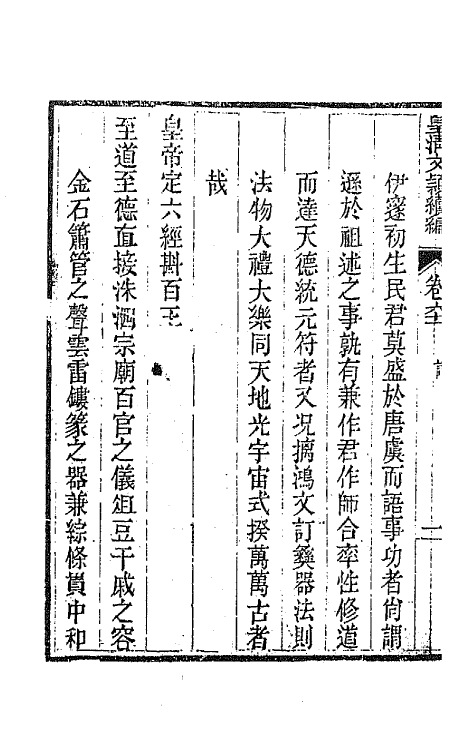 皇清文穎續編 卷六十 二
伊邃初生民君莫盛於唐虞而語事功者尙謂
遜於祖述之事孰有兼作君作師合率性修道
而達天德統元符者又况摛鴻文訂彝器法則
法物大禮大樂同天地光宇宙式揆萬萬古者
哉
皇帝定六經斟百王
至道至德直接洙泗宗廟百官之儀俎豆干戚之容
金石簫管之聲雲雷鏤篆之器兼綜條貫中和